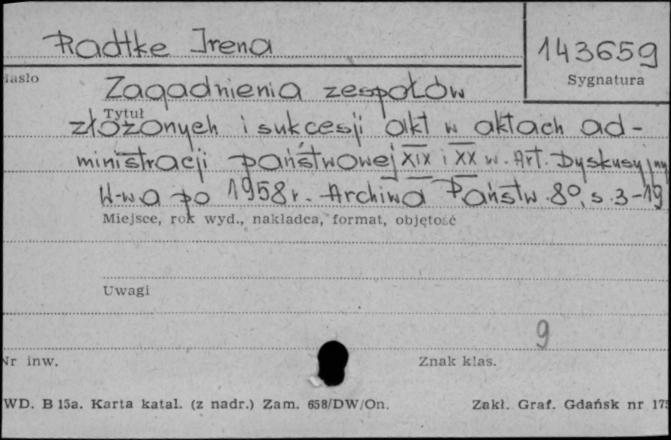 Radtke Irena
143659
Sygnatura
Hasło
Zagadnienia zespołów
Tytuł
złożonych i sukcesji akt w aktach ad-
ministracji państwowej XIX i XX w. Art. Dyskusyjny
W-wa po 1958r. Archiwa Państw. 8°, s. 3-19
Miejsce, rok wyd., nakładca, format, objętość
Uwagi
9
Nr inw.
Znak klas.
WD. B 15a. Karta katal. (z nadr.) Zam. 658/DW/On.
Zakł. Graf. Gdańsk nr 175